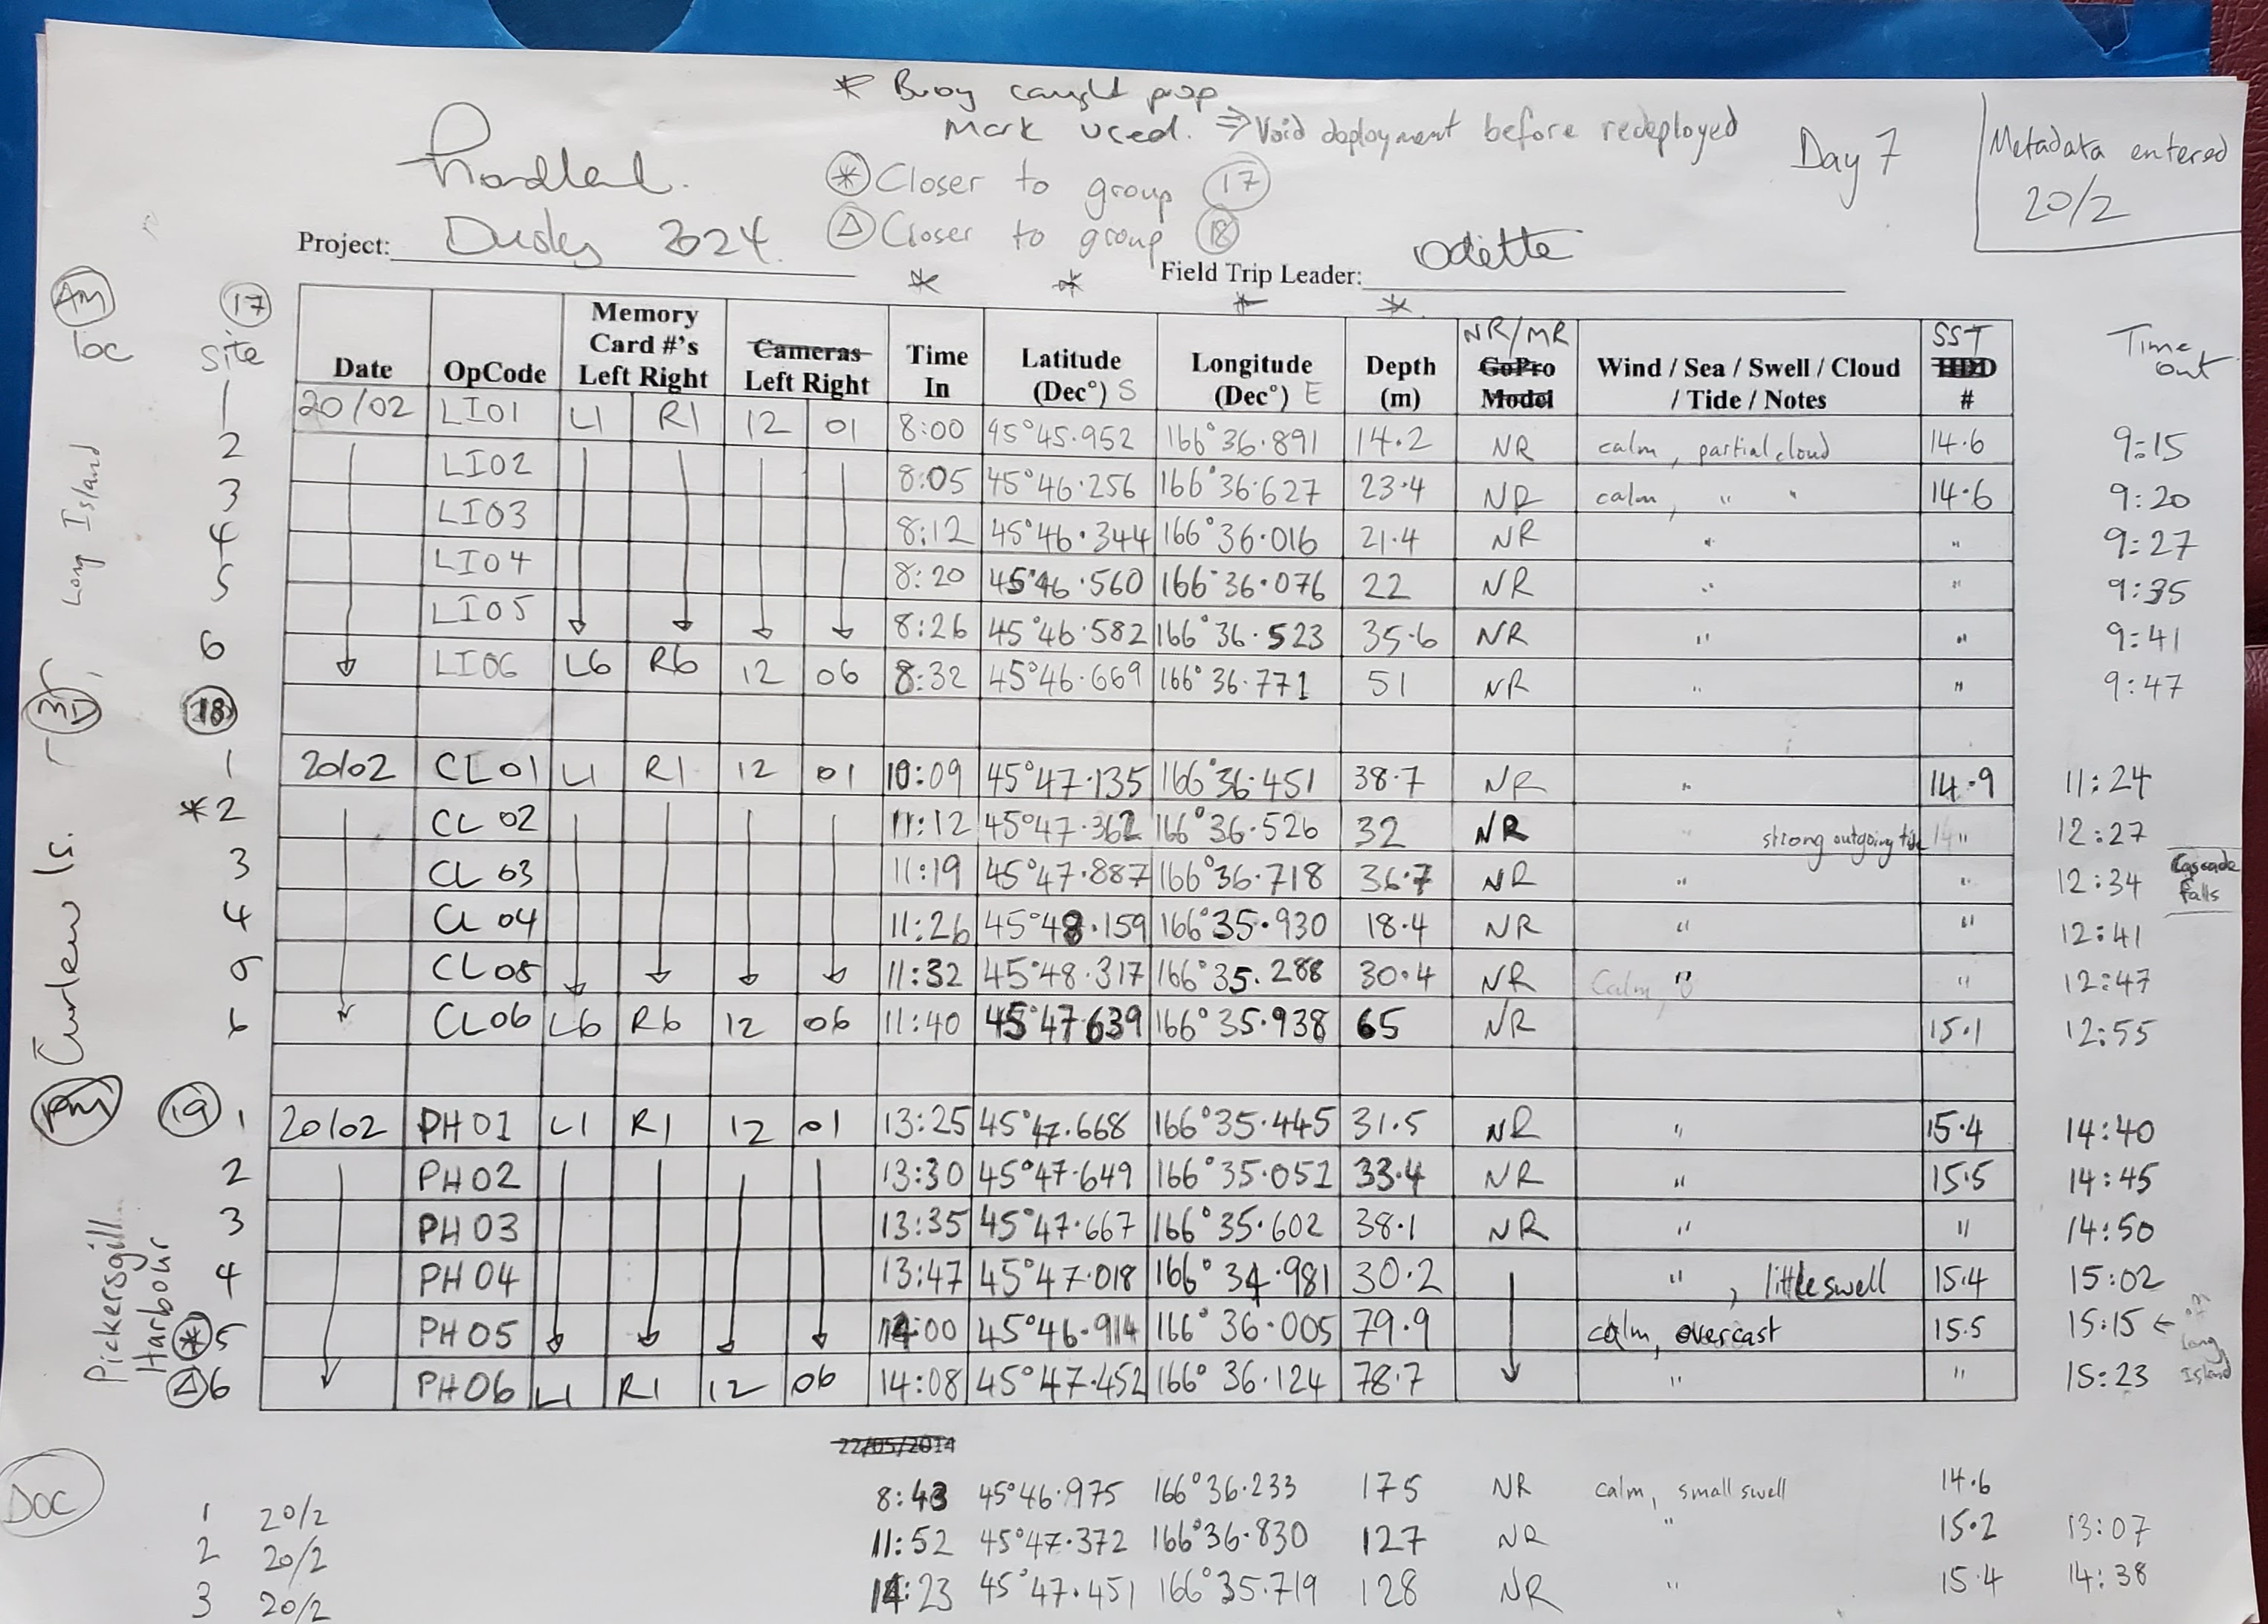 * Buoy caught prop
Mark used. ⇒ Void deployment before redeployed
Day 7
Metadata entered
20/2
⊛ Closer to group 17
△ Closer to group 18
Project: Dusky 2024
Field Trip Leader: Odette
* * * *
AM
17
Site
Date OpCode Memory Card #'s Left Right Cameras Left Right Time In Latitude (Dec°) S Longitude (Dec°) E Depth (m) NR/MR GoPro Model Wind / Sea / Swell / Cloud / Tide / Notes SST HDD # Time out
Long Island
1 20/02 LI01 L1 R1 12 01 8:00 45°45.952 166°36.891 14.2 NR calm, partial cloud 14.6 9:15
2 LI02 8:05 45°46.256 166°36.627 23.4 NR calm, " " 14.6 9:20
3 LI03 8:12 45°46.344 166°36.016 21.4 NR " " 9:27
4 LI04 8:20 45°46.560 166°36.076 22 NR " " 9:35
5 LI05 8:26 45°46.582 166°36.523 35.6 NR " " 9:41
6 LI06 L6 R6 12 06 8:32 45°46.669 166°36.771 51 NR " " 9:47
18
Curlew Is.
1 20/02 CL01 L1 R1 12 01 10:09 45°47.135 166°36.451 38.7 NR " 14.9 11:24
*2 CL02 11:12 45°47.362 166°36.526 32 NR " strong outgoing tide " 12:27
3 CL03 11:19 45°47.887 166°36.718 36.7 NR " " 12:34 Cascade falls
4 CL04 11:26 45°48.159 166°35.930 18.4 NR " " 12:41
5 CL05 11:32 45°48.317 166°35.288 30.4 NR Calm, " " 12:47
6 CL06 L6 R6 12 06 11:40 45°47.639 166°35.938 65 NR 15.1 12:55
PM
19
Pickersgill Harbour
1 20/02 PH01 L1 R1 12 01 13:25 45°47.668 166°35.445 31.5 NR " 15.4 14:40
2 PH02 13:30 45°47.649 166°35.052 33.4 NR " 15.5 14:45
3 PH03 13:35 45°47.667 166°35.602 38.1 NR " " 14:50
4 PH04 13:47 45°47.018 166°34.981 30.2 ", little swell 15.4 15:02
⊛5 PH05 14:00 45°46.914 166°36.005 79.9 calm, overcast 15.5 15:15 ← Long Island
△6 PH06 L1 R1 12 06 14:08 45°47.452 166°36.124 78.7 " " 15:23
22/05/2014
DOC
1 20/2 8:43 45°46.975 166°36.233 175 NR calm, small swell 14.6
2 20/2 11:52 45°47.372 166°36.830 127 NR " 15.2 13:07
3 20/2 14:23 45°47.451 166°35.719 128 NR " 15.4 14:38